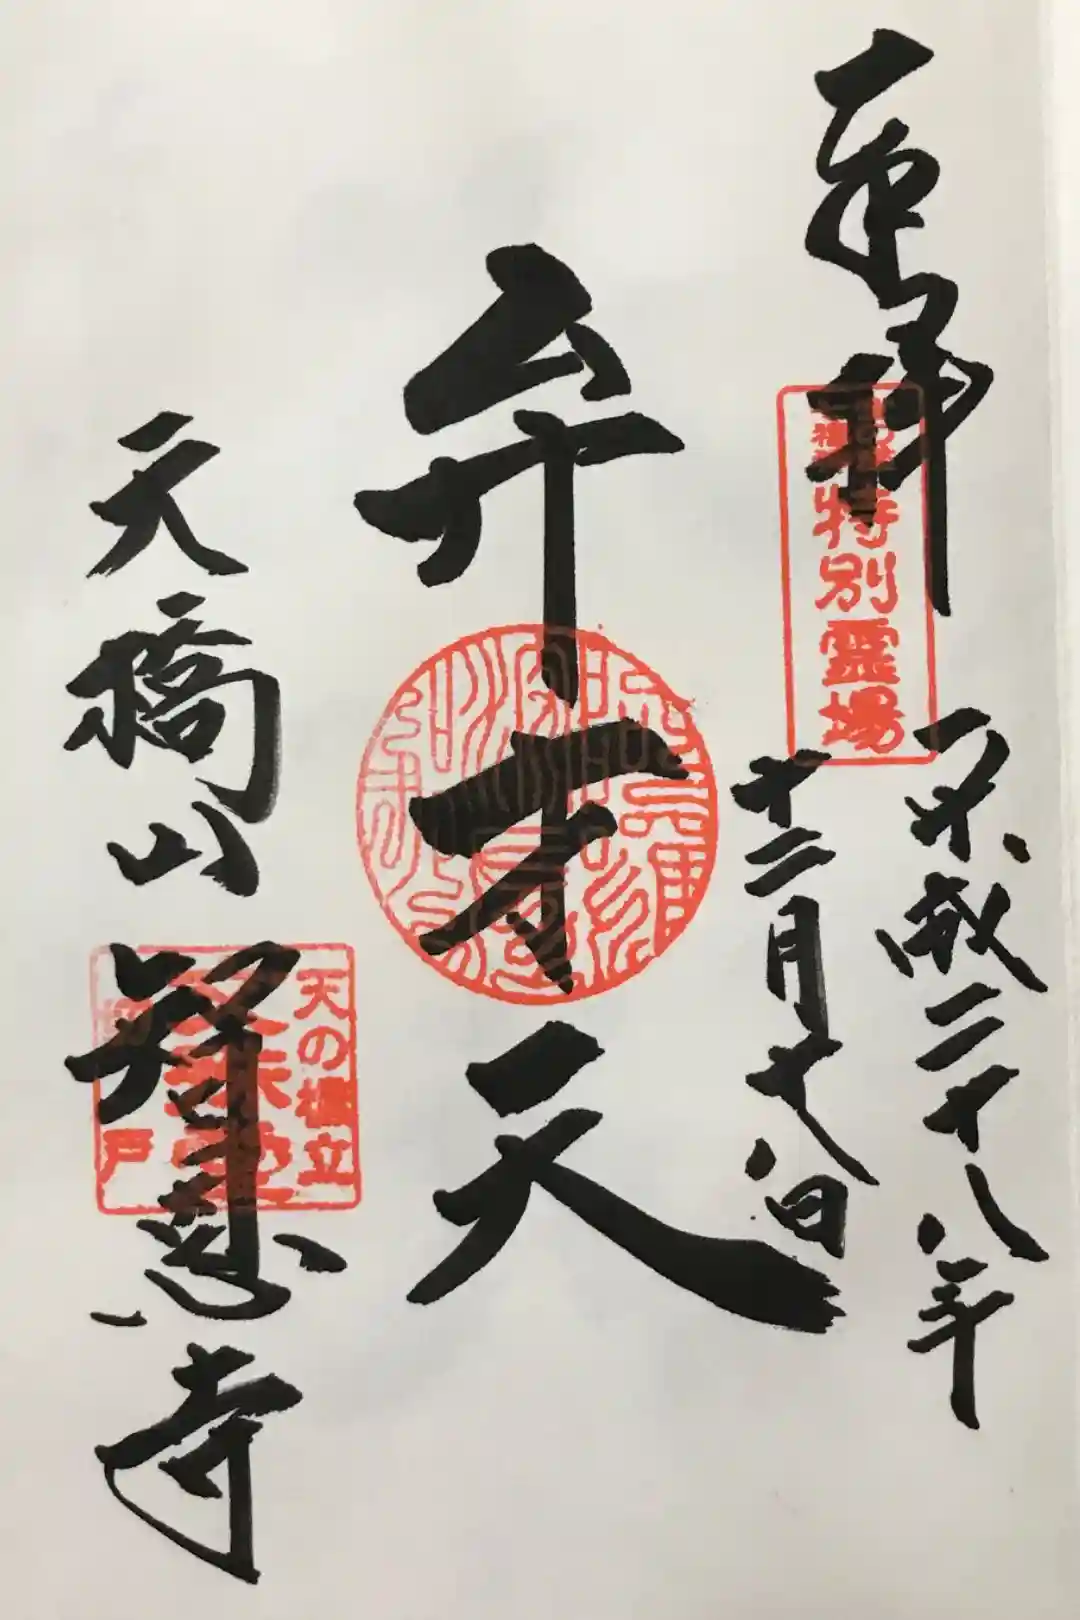 奉拝
平成二十八年
十二月十八日
特別霊場
弁才天
天橋山智恩寺
天の橋立
文殊堂
切戸